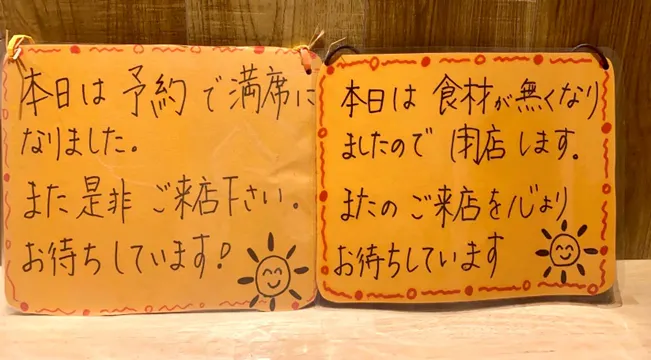 本日は 予約 で満席に
なりました。
また 是非 ご来店下さい。
お待ちしています!
本日は 食材が無くなり
ましたので 閉店します。
またの ご来店を心より
お待ちしています